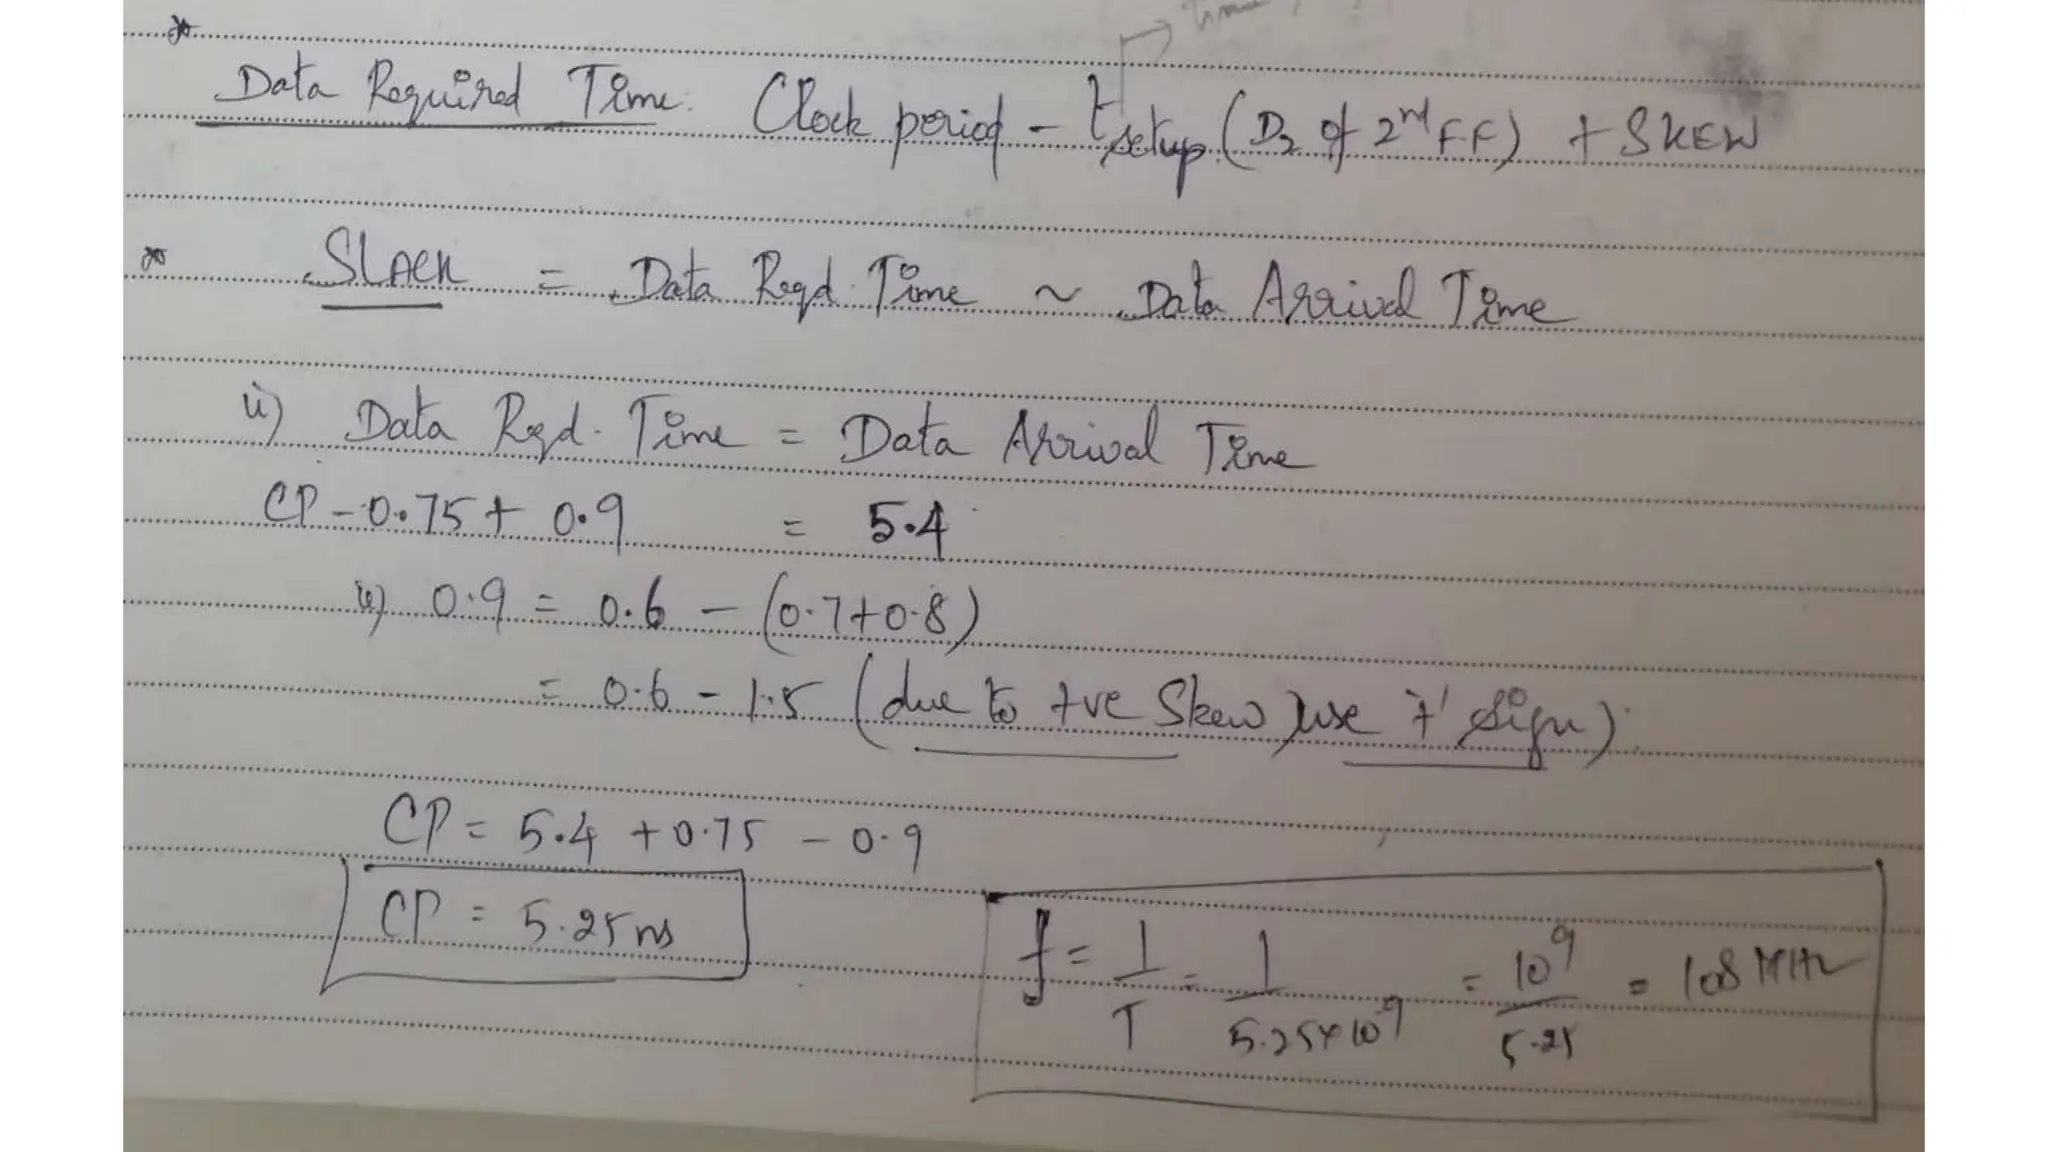 Time
Data Required Time: Clock period - tsetup (D2 of 2nd FF) + SKEW
* SLACK = Data Reqd. Time ~ Data Arrival Time
ii) Data Rqd. Time = Data Arrival Time
CP - 0.75 + 0.9 = 5.4
0.9 = 0.6 - (0.7+0.8)
= 0.6 - 1.5 (due to +ve Skew) use '+' sign).
CP = 5.4 + 0.75 - 0.9
CP = 5.25 ns
f = 1/T = 1/5.25×10^-9 = 10^9/5.25 = 108 MHz